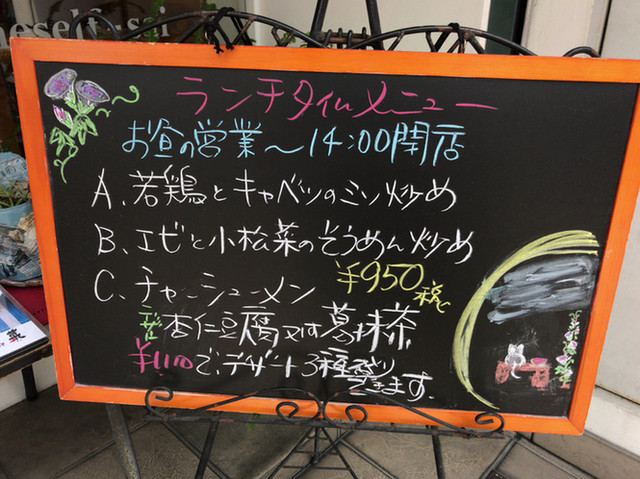 neself-sai
ランチタイムメニュー
お昼の営業〜14:00閉店
A、若鶏とキャベツのミソ炒め
B、エビと小松菜のそうめん炒め
C、チャーシューメン
¥950税込
デザート 杏仁豆腐又は葛抹茶
¥1100で、デザート3種盛り
できます。